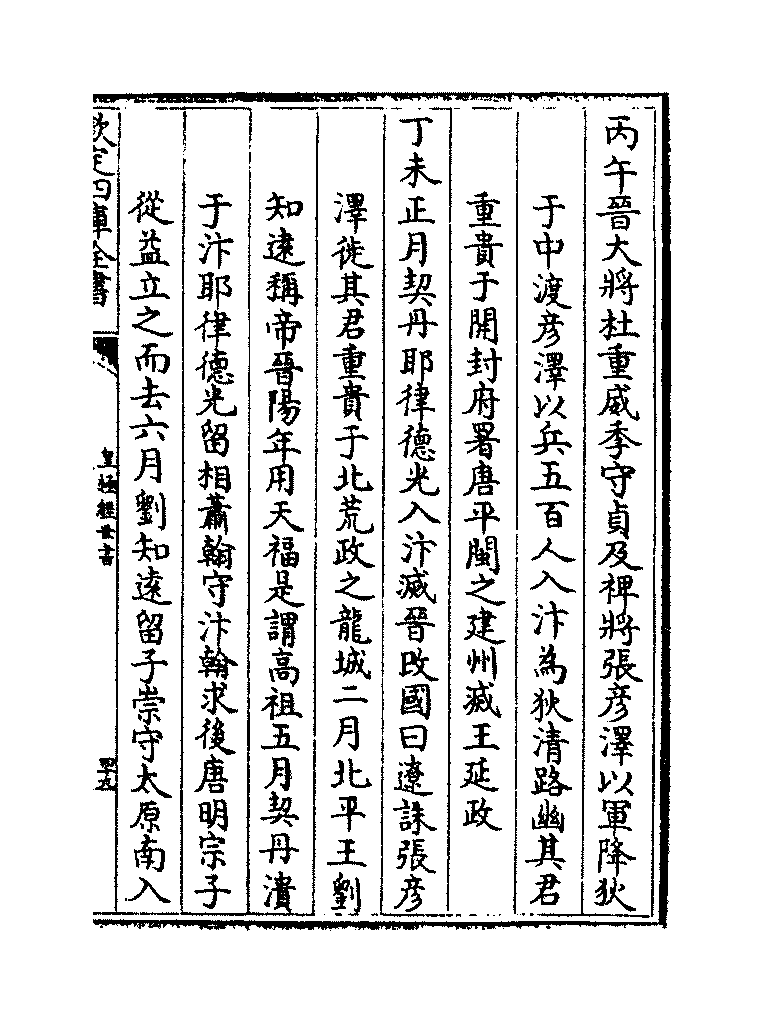 丙午晉大將杜重威李守貞及裨將張彦澤以軍降狄
于中渡彦澤以兵五百人入汴為狄清路幽其君
重貴于開封府署唐平閩之建州滅王延政
丁未正月契丹耶律徳光入汴滅晉改國曰遼誅張彦
澤徙其君重貴于北荒政之龍城二月北平王劉
知逺稱帝晉陽年用天福是謂髙祖五月契丹潰
于汴耶律徳光留相蕭翰守汴翰求後唐明宗子
從益立之而去六月劉知逺留子崇守太原南入
欽定四庫全書
皇極經世書
四十九